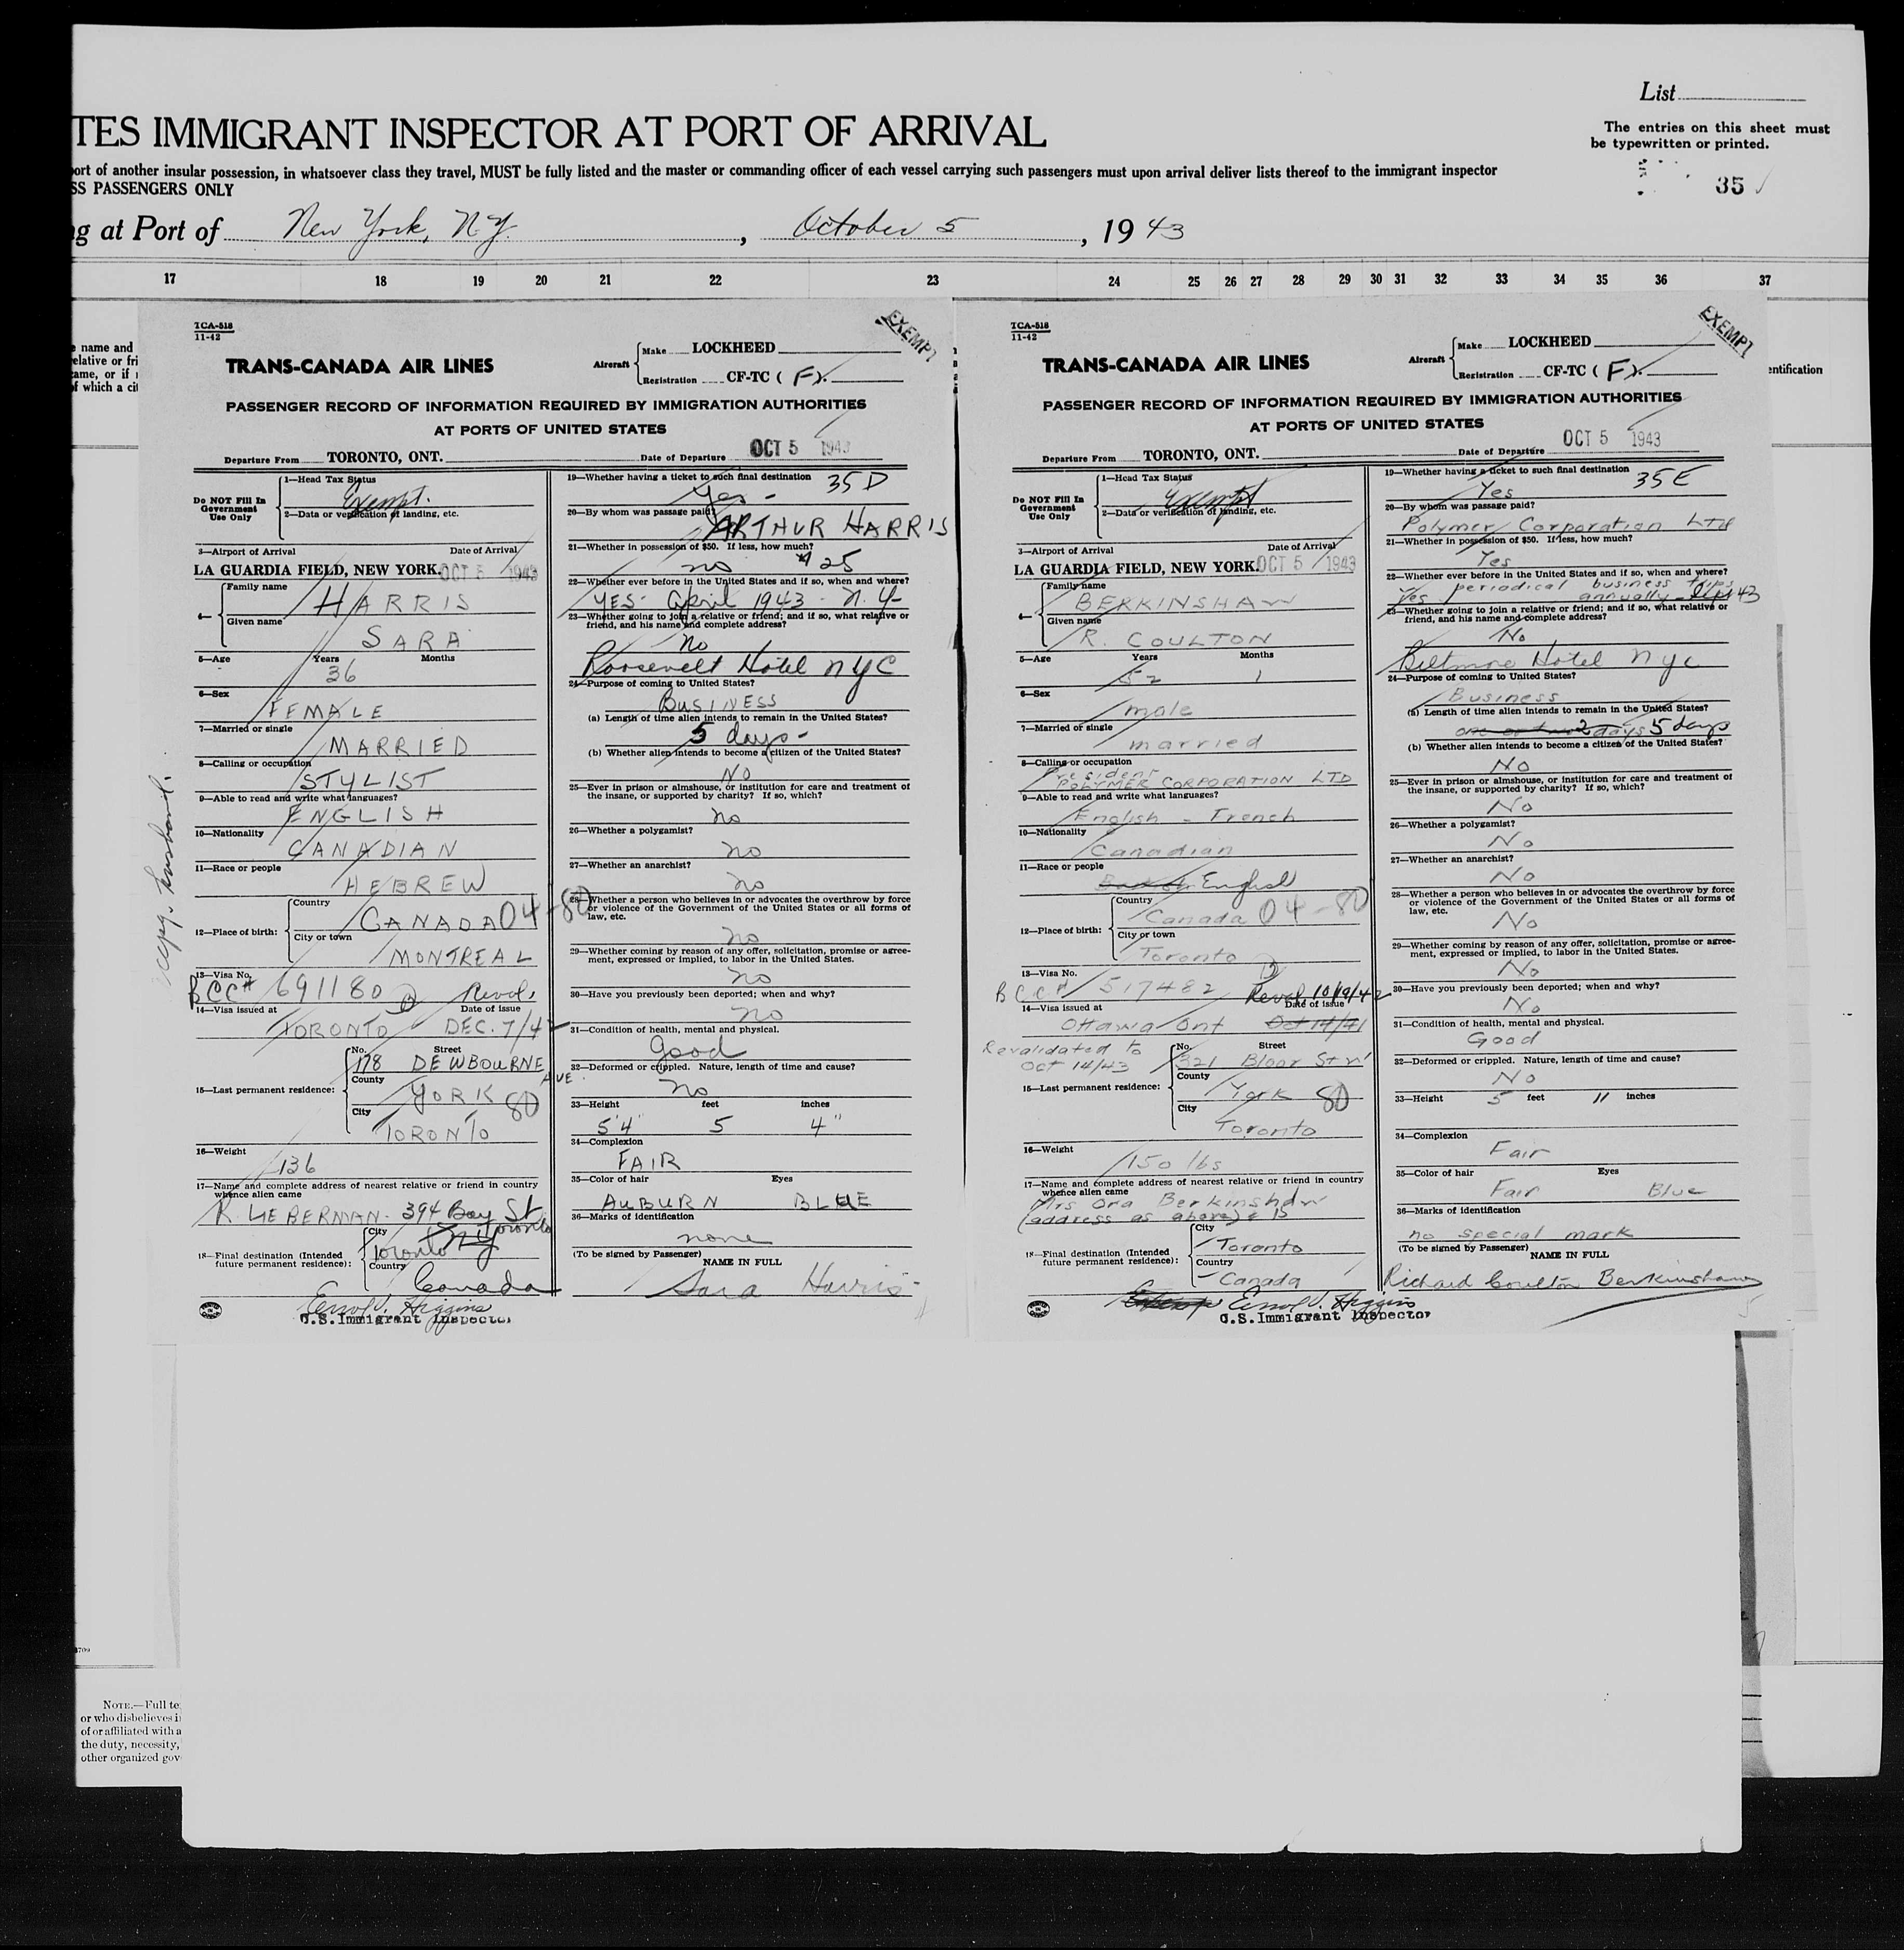 List
TES IMMIGRANT INSPECTOR AT PORT OF ARRIVAL
The entries on this sheet must
be typewritten or printed.
port of another insular possession, in whatsoever class they travel, MUST be fully listed and the master or commanding officer of each vessel carrying such passengers must upon arrival deliver lists thereof to the immigrant inspector
SS PASSENGERS ONLY
35
g at Port of New York, N.Y. , October 5 , 1943
17 18 19 20 21 22 23 24 25 26 27 28 29 30 31 32 33 34 35 36 37
e name and
relative or fri
ame, or if
of which a cit
entification
TCA-518
11-42
EXEMPT
TRANS-CANADA AIR LINES
Aircraft
Make LOCKHEED
Registration CF-TC ( F ).
PASSENGER RECORD OF INFORMATION REQUIRED BY IMMIGRATION AUTHORITIES
AT PORTS OF UNITED STATES
Departure From TORONTO, ONT. Date of Departure OCT 5 1943
Do NOT Fill In
Government
Use Only
1—Head Tax Status
Exempt.
2—Data or verification of landing, etc.
3—Airport of Arrival Date of Arrival
LA GUARDIA FIELD, NEW YORK. OCT 5 1943
4—
Family name
HARRIS
Given name
SARA
5—Age Years Months
36
6—Sex
FEMALE
7—Married or single
MARRIED
8—Calling or occupation
STYLIST
9—Able to read and write what languages?
ENGLISH
10—Nationality
CANADIAN
11—Race or people
HEBREW
12—Place of birth:
Country
CANADA 04-80
City or town
MONTREAL
13—Visa No.
BCC# 691180 Reval.
14—Visa issued at Date of issue
TORONTO DEC. 7/42
15—Last permanent residence:
No. Street
178 DEWBOURNE AVE.
County
YORK 80
City
TORONTO
16—Weight
136
17—Name and complete address of nearest relative or friend in country
whence alien came
R. LIEBERMAN. 394 Bay St
Toronto
18—Final destination (Intended
future permanent residence):
City
Toronto
Country
Canada
Errol J. Higgins
U.S. Immigrant Inspector
husband.
19—Whether having a ticket to such final destination 35D
Yes -
20—By whom was passage paid?
ARTHUR HARRIS
21—Whether in possession of $50. If less, how much?
no $25
22—Whether ever before in the United States and if so, when and where?
YES - April 1943 - N.Y-
23—Whether going to join a relative or friend; and if so, what relative or
friend, and his name and complete address?
No
Roosevelt Hotel NYC
24—Purpose of coming to United States?
BUSINESS
(a) Length of time alien intends to remain in the United States?
5 days -
(b) Whether alien intends to become a citizen of the United States?
NO
25—Ever in prison or almshouse, or institution for care and treatment of
the insane, or supported by charity? If so, which?
no
26—Whether a polygamist?
no
27—Whether an anarchist?
no
28—Whether a person who believes in or advocates the overthrow by force
or violence of the Government of the United States or all forms of
law, etc.
no
29—Whether coming by reason of any offer, solicitation, promise or agree-
ment, expressed or implied, to labor in the United States.
no
30—Have you previously been deported; when and why?
no
31—Condition of health, mental and physical.
good
32—Deformed or crippled. Nature, length of time and cause?
no
33—Height feet inches
5'4" 5 4"
34—Complexion
FAIR
35—Color of hair Eyes
AUBURN BLUE
36—Marks of identification
none
(To be signed by Passenger) NAME IN FULL
Sara Harris
TCA-518
11-42
EXEMPT
TRANS-CANADA AIR LINES
Aircraft
Make LOCKHEED
Registration CF-TC ( F ).
PASSENGER RECORD OF INFORMATION REQUIRED BY IMMIGRATION AUTHORITIES
AT PORTS OF UNITED STATES
Departure From TORONTO, ONT. Date of Departure OCT 5 1943
Do NOT Fill In
Government
Use Only
1—Head Tax Status
Exempt
2—Data or verification of landing, etc.
3—Airport of Arrival Date of Arrival
LA GUARDIA FIELD, NEW YORK. OCT 5 1943
4—
Family name
BERKINSHAW
Given name
R. COULTON
5—Age Years Months
52 1
6—Sex
male
7—Married or single
married
8—Calling or occupation
President
POLYMER CORPORATION LTD
9—Able to read and write what languages?
English - French
10—Nationality
Canadian
11—Race or people
English
12—Place of birth:
Country
Canada 04-80
City or town
Toronto
13—Visa No.
BCC# 517482 Reval 10/19/42
14—Visa issued at Date of issue
Ottawa Ont Oct 14/41
Revalidated to
Oct 14/43
15—Last permanent residence:
No. Street
321 Bloor St W
County
York 80
City
Toronto
16—Weight
150 lbs
17—Name and complete address of nearest relative or friend in country
whence alien came
Mrs Ora Berkinshaw
(address as above) # 15
18—Final destination (Intended
future permanent residence):
City
Toronto
Country
Canada
Errol J. Higgins
U.S. Immigrant Inspector
19—Whether having a ticket to such final destination 35E
Yes
20—By whom was passage paid?
Polymer Corporation Ltd
21—Whether in possession of $50. If less, how much?
Yes
22—Whether ever before in the United States and if so, when and where?
Yes periodical business trips
annually - Sept 43
23—Whether going to join a relative or friend; and if so, what relative or
friend, and his name and complete address?
No
Biltmore Hotel NYC
24—Purpose of coming to United States?
Business
(a) Length of time alien intends to remain in the United States?
one or two 2 days 5 days
(b) Whether alien intends to become a citizen of the United States?
No
25—Ever in prison or almshouse, or institution for care and treatment of
the insane, or supported by charity? If so, which?
No
26—Whether a polygamist?
No
27—Whether an anarchist?
No
28—Whether a person who believes in or advocates the overthrow by force
or violence of the Government of the United States or all forms of
law, etc.
No
29—Whether coming by reason of any offer, solicitation, promise or agree-
ment, expressed or implied, to labor in the United States.
No
30—Have you previously been deported; when and why?
No
31—Condition of health, mental and physical.
Good
32—Deformed or crippled. Nature, length of time and cause?
No
33—Height 5 feet 11 inches
34—Complexion
Fair
35—Color of hair Eyes
Fair Blue
36—Marks of identification
no special mark
(To be signed by Passenger) NAME IN FULL
Richard Coulton Berkinshaw
NOTE.—Full te
or who disbelieves i
of or affiliated with a
the duty, necessity,
other organized gov